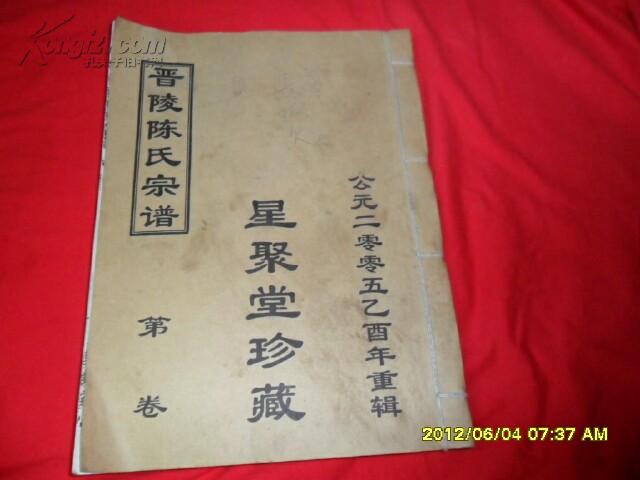 Kongfz.com
孔夫子旧书网
晋陵陈氏宗谱
第 卷
星聚堂珍藏
公元二零零五乙酉年重辑
2012/06/04 07:37 AM